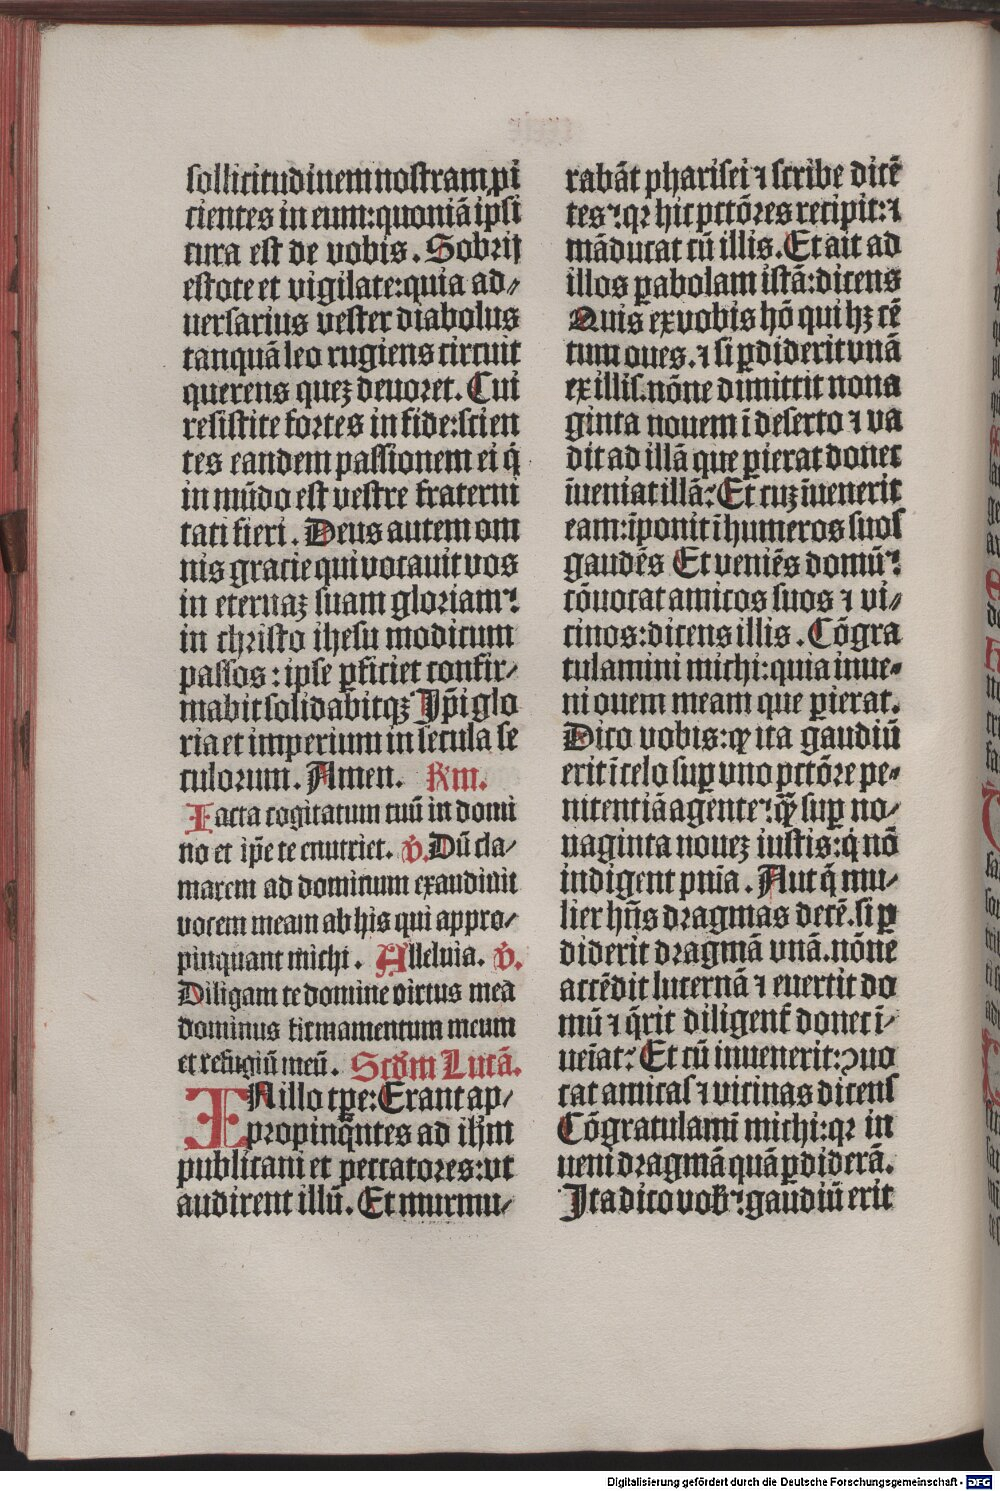 sollicitudinem nostram ꝓi
cientes in eum: quoniā ipsi
cura est de vobis. Sobrij
estote et vigilate: quia ad⸗
uersarius vester diabolus
tanquā leo rugiens circuit
querens quez deuoret. Cui
resistite fortes in fide: scien
tes eandem passionem ei q̇
in mūdo est vestre fraterni
tati fieri. Deus autem om
nis gracie qui vocauit vos
in eternaz suam gloriam:
in christo ihesu modicum
passos: ipse ꝑficiet confir⸗
mabit solidabitqꝫ Ip̄i glo
ria et imperium in secula se
culorum. Amen. Rm.
Iacta cogitatum tuū in domi
no et ip̄e te enutriet. v̇. Dū cla⸗
marem ad dominum exaudiuit
vocem meam ab his qui appro⸗
pinquant michi. Alleluia. v̇.
Diligam te domine virtus mea
dominus firmamentum meum
et refugiū meū. Scdm Lucā.
IN illo tꝑe: Erant ap⸗
propinq̄ntes ad ihm̄
publicani et peccatores: ut
audirent illū. Et murmu⸗
rabāt pharisei ⁊ scribe dicē
tes: qꝛ hic pctōres recipit: ⁊
māducat cū illis. Et ait ad
illos ꝑabolam istā: dicens
Quis ex vobis hō qui hꝫ cē
tum oues. ⁊ si ꝑdiderit vnā
ex illis. nōne dimittit nona
ginta nouem ī deserto ⁊ va
dit ad illā que ꝑierat donec
īueniat illā: Et cuz īuenerit
eam: īponit ī humeros suos
gaudēs Et veniēs domū:
cōuocat amicos suos ⁊ vi⸗
cinos: dicens illis. Cōgra
tulamini michi: quia inue⸗
ni ouem meam que ꝑierat.
Dico vobis: ꝙ ita gaudiū
erit ī celo suꝑ vno pctōre pe⸗
nitentiā agente: q̄ꝫ suꝑ no⸗
naginta nouez iustis: q̇ nō
indigent pn̄ia. Aut q̄ mu⸗
lier hn̄s dragmas decē. si ꝑ
diderit dragmā vnā. nōne
accēdit lucernā ⁊ euertit do
mū ⁊ q̄rit diligent̄ donec ī⸗
ueīat: Et cū inuenerit: ꝯuo
cat amicas ⁊ vicinas dicens
Cōgratulamī michi: qꝛ in
ueni dragmā quā ꝑdiderā.
Ita dico vob̄: gaudiū erit
Digitalisierung gefördert durch die Deutsche Forschungsgemeinschaft - DFG